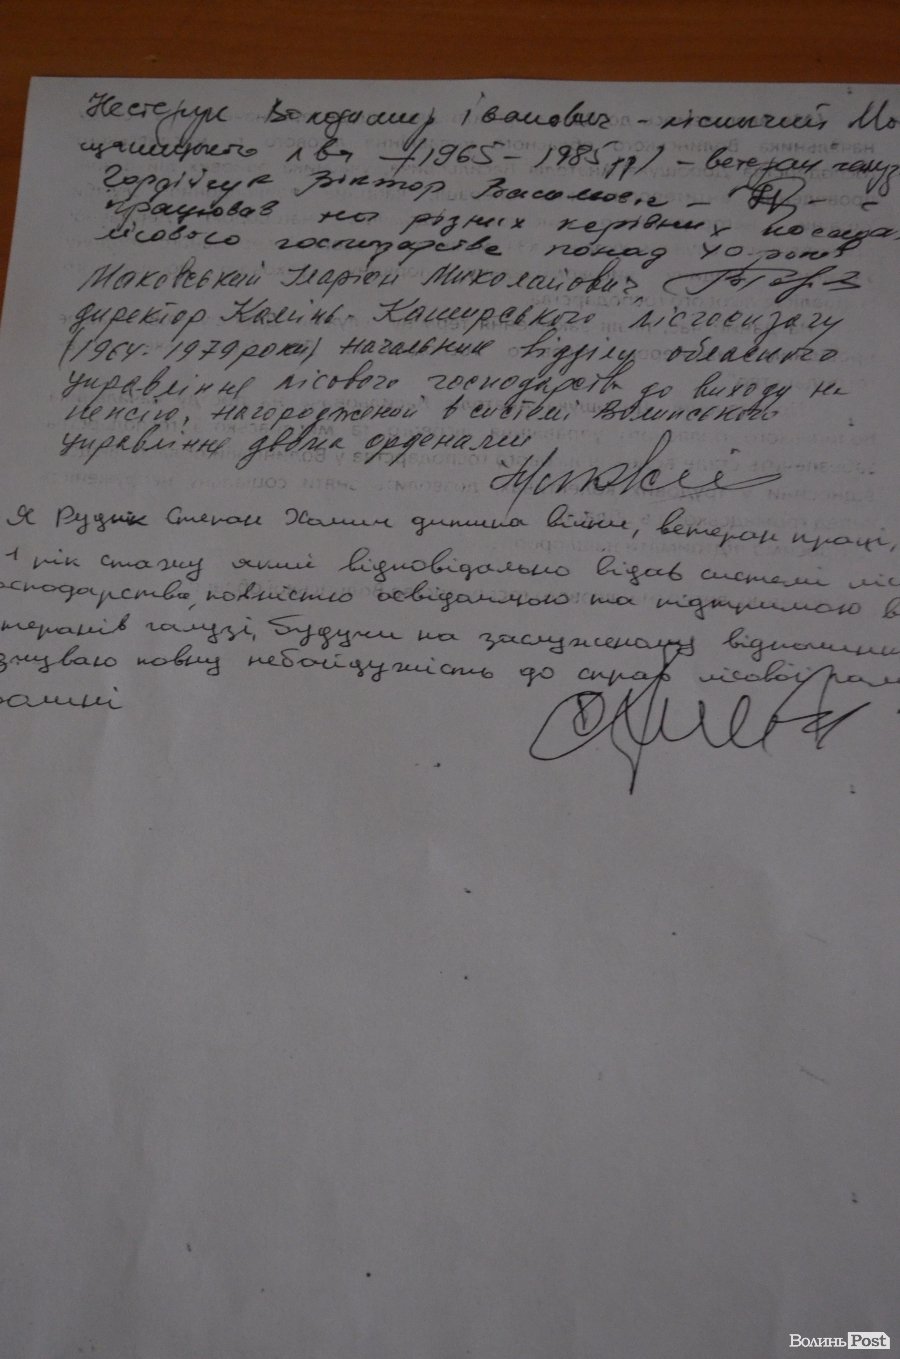 Нестерук Володимир Іванович - лісничий Мо
щаницького л-ва (1965-1985 рр) - ветеран галуз
Гордійчук Віктор Васильович -
працював на різних керівних посадах
лісового господарства понад 40 років
Маковський Маріон Миколайович
директор Камінь-Каширського лісгоспзагу
(1964-1979 роки) начальник відділу обласного
управління лісового господарства до виходу на
пенсію, нагороджений в системі Волинського
управління двома орденами
Я Рудик Степан дитина війни, ветеран праці,
1 рік стажу який відповідально віддав системі ліс
осподарства, повністю освідомлюю та підтримаю в
теранів галузі, будучи на заслуженому відпочинку
вчуваю повну небайдужість до справ лісової гал
олині
ВолиньPost